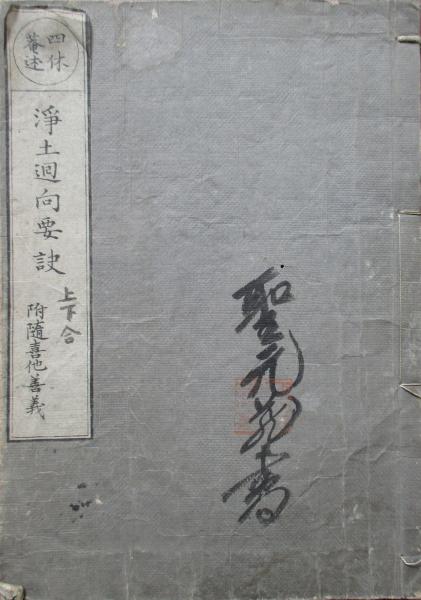 四休
菴述
淨土迴向要訣
上下合
附隨喜他善義
聖元蔵書